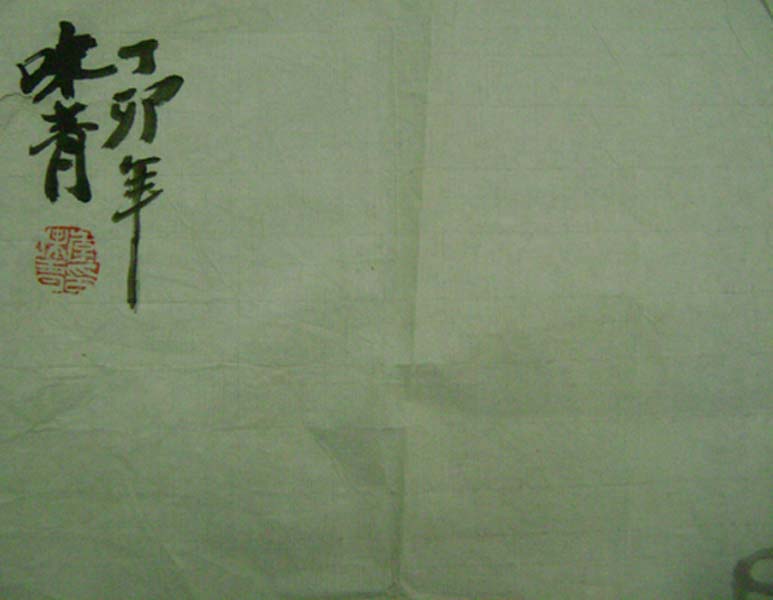 丁卯年
味青